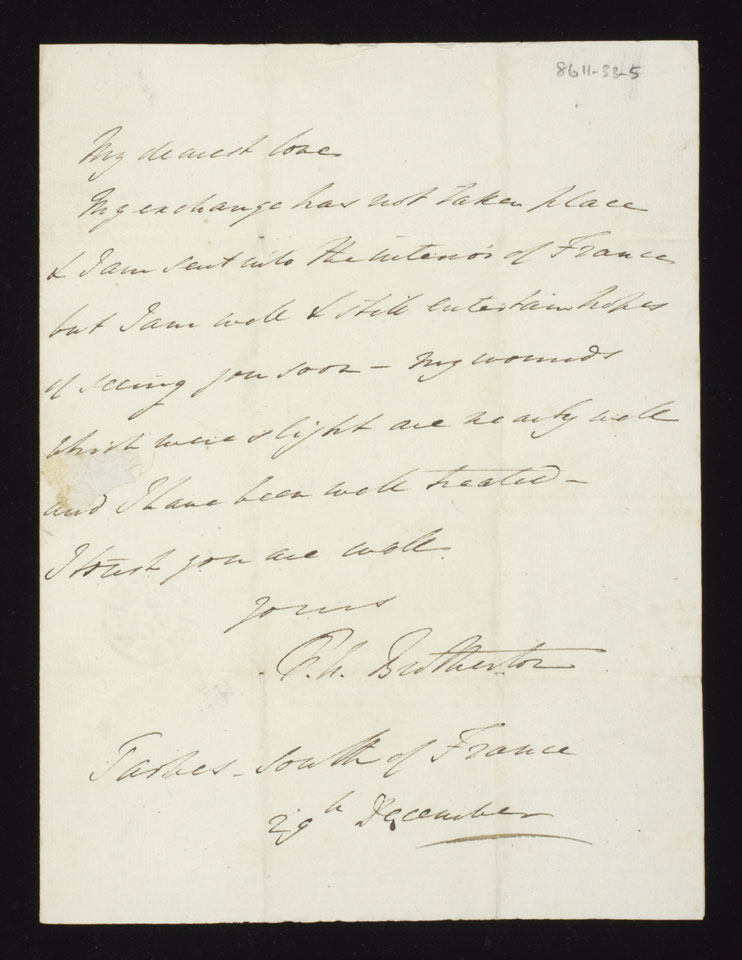 8611-33-5
My dearest love
My exchange has not taken place
& I am sent into the interior of France
but I am well & still entertain hopes
of seeing you soon – My wounds
which were slight are nearly well
and I have been well treated –
I trust you are well.
Yours
Brotherton
Tarbes – South of France
29th December